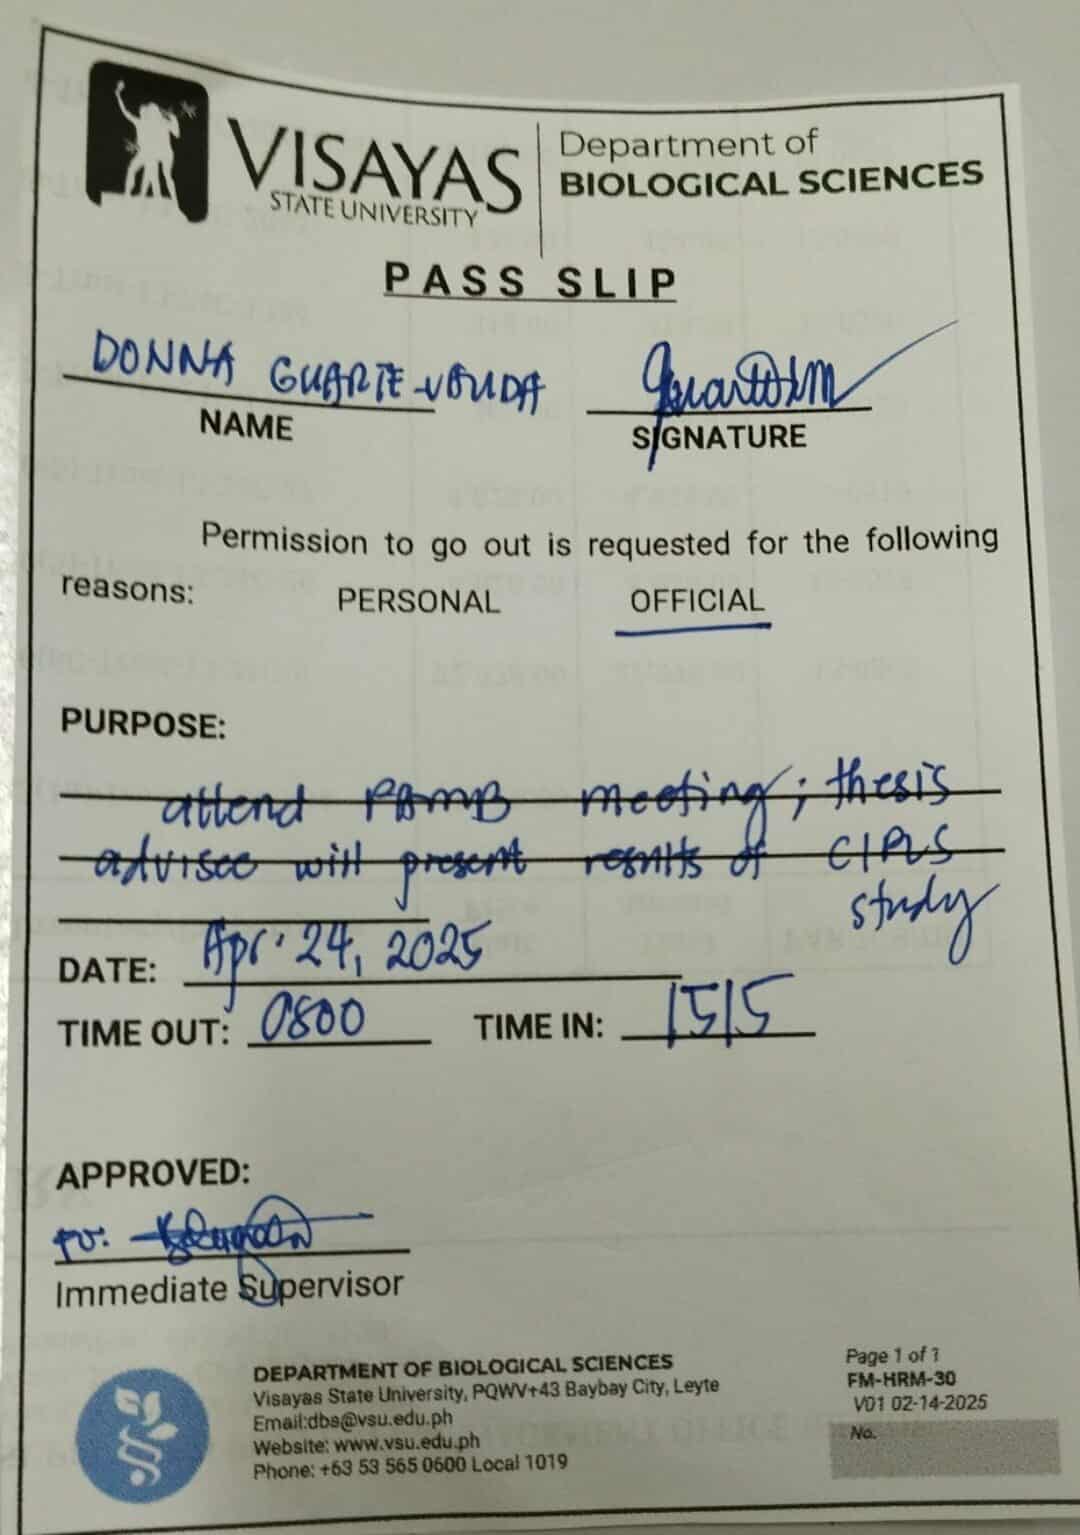 VISAYAS
STATE UNIVERSITY
Department of
BIOLOGICAL SCIENCES
PASS SLIP
DONNA GUARTE-
NAME
SIGNATURE
Permission to go out is requested for the following
reasons: PERSONAL OFFICIAL
PURPOSE:
attend PAMB meeting; thesis
advisee will present results of
study
DATE: Apr. 24, 2025
TIME OUT: 0800 TIME IN: 1515
APPROVED:
Immediate Supervisor
DEPARTMENT OF BIOLOGICAL SCIENCES
Visayas State University, PQWV+43 Baybay City, Leyte
Email:dbs@vsu.edu.ph
Website: www.vsu.edu.ph
Phone: +63 53 565 0600 Local 1019
Page 1 of 1
FM-HRM-30
V01 02-14-2025
No.